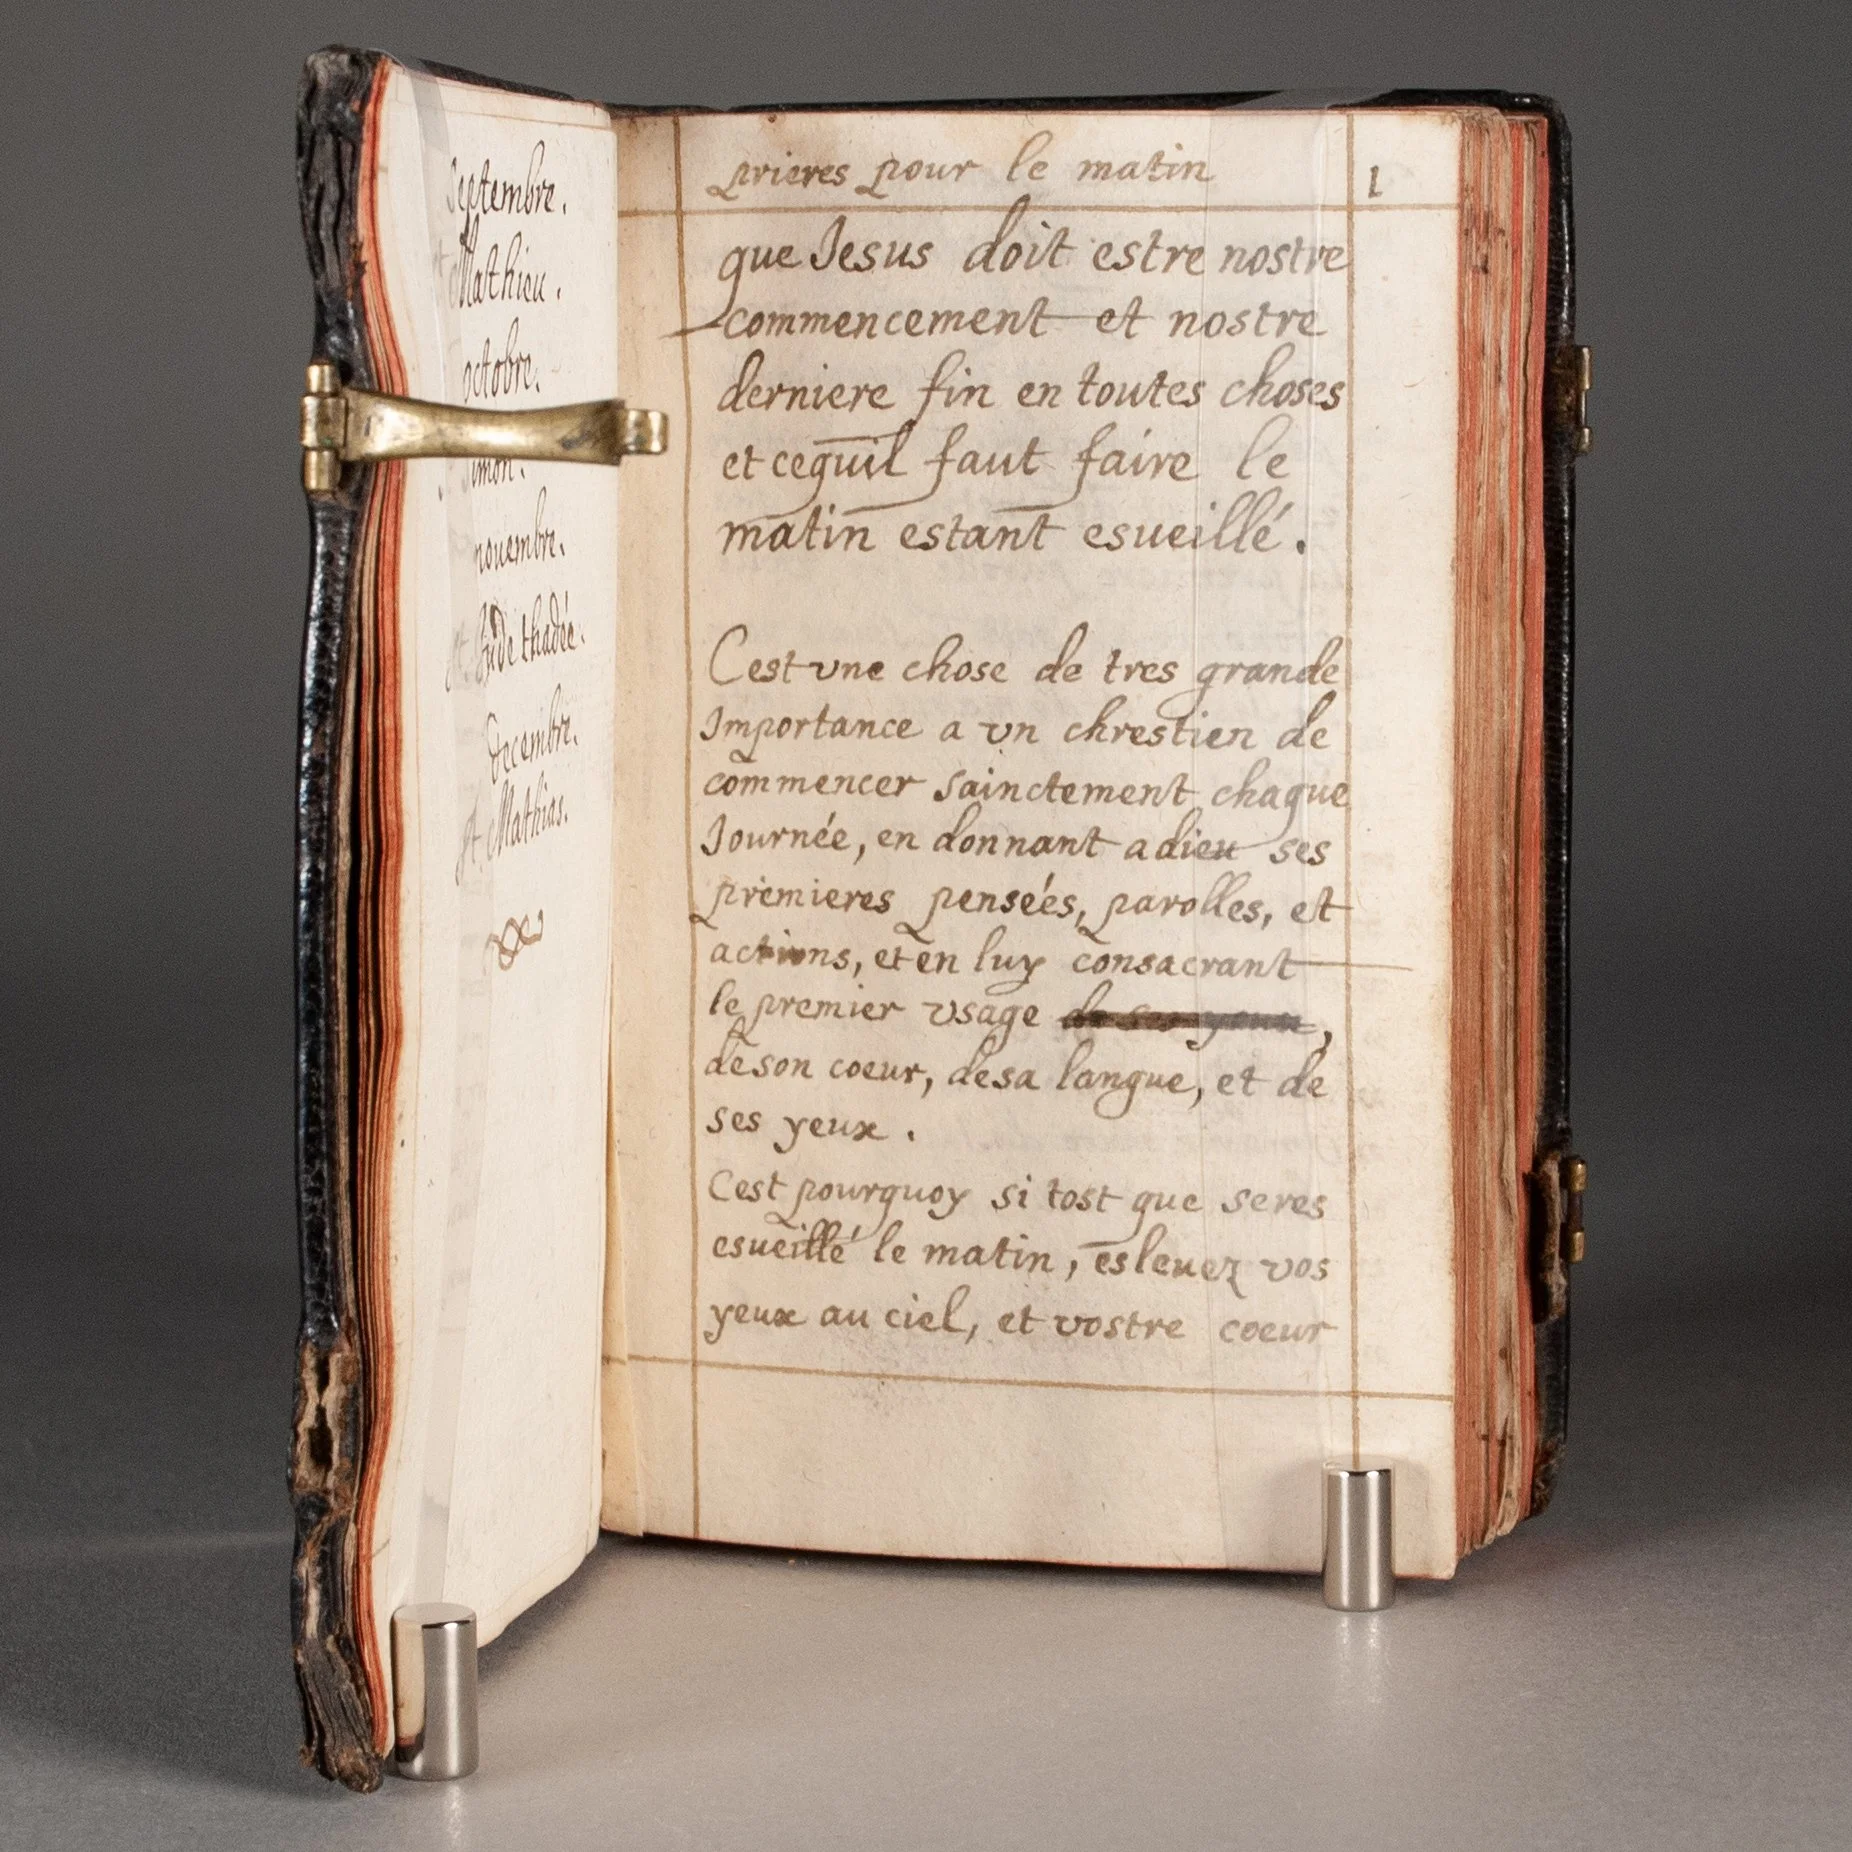 septembre.
st Mathieu.
octobre.
simon.
nouembre.
st Jude thadée.
decembre.
st Mathias.
prieres pour le matin
1
que Jesus doit estre nostre
commencement et nostre
derniere fin en toutes choses
et cequil faut faire le
matin estant esueillé.
Cest vne chose de tres grande
Importance a vn chrestien de
commencer sainctement chaque
Journée, en donnant adieu ses
premieres penseés, parolles, et
actions, et en luy consacrant
le premier vsage de ses yeux,
de son coeur, desa langue, et de
ses yeux.
Cest pourquoy si tost que seres
esueillé le matin, esleuez vos
yeux au ciel, et vostre coeur